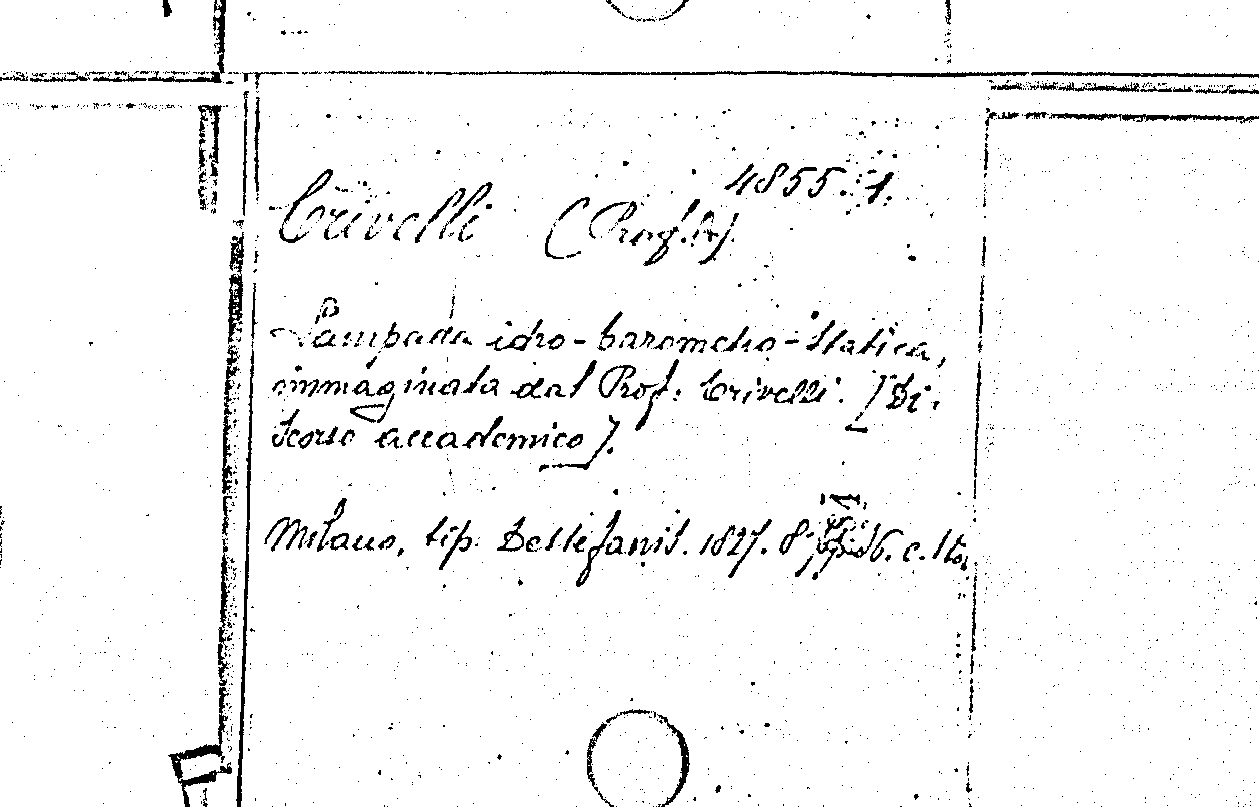 4855. 1.
Crivelli (Prof.
Lampada idro-barometro-statica,
immaginata dal Prof. Crivelli. [Di-
scorso accademico].
Milano, tip. Destefanis. 1827. 8° pp. 16. c.